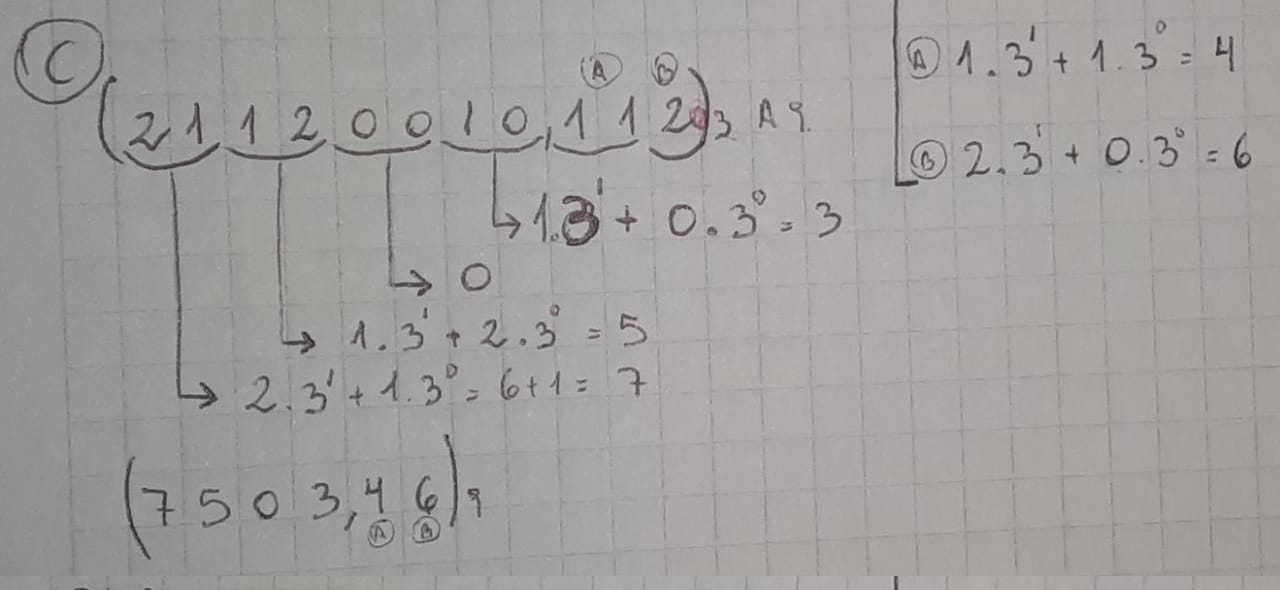 C
(2 1 1 2 0 0 1 0, 1 1 2 0)₃ A 9
Ⓐ Ⓑ
1.3¹ + 0.3⁰ = 3
0
1.3¹ + 2.3⁰ = 5
2.3¹ + 1.3⁰ = 6+1 = 7
(7 5 0 3, 4 6)₉
Ⓐ Ⓑ
Ⓐ 1.3¹ + 1.3⁰ = 4
Ⓑ 2.3¹ + 0.3⁰ = 6